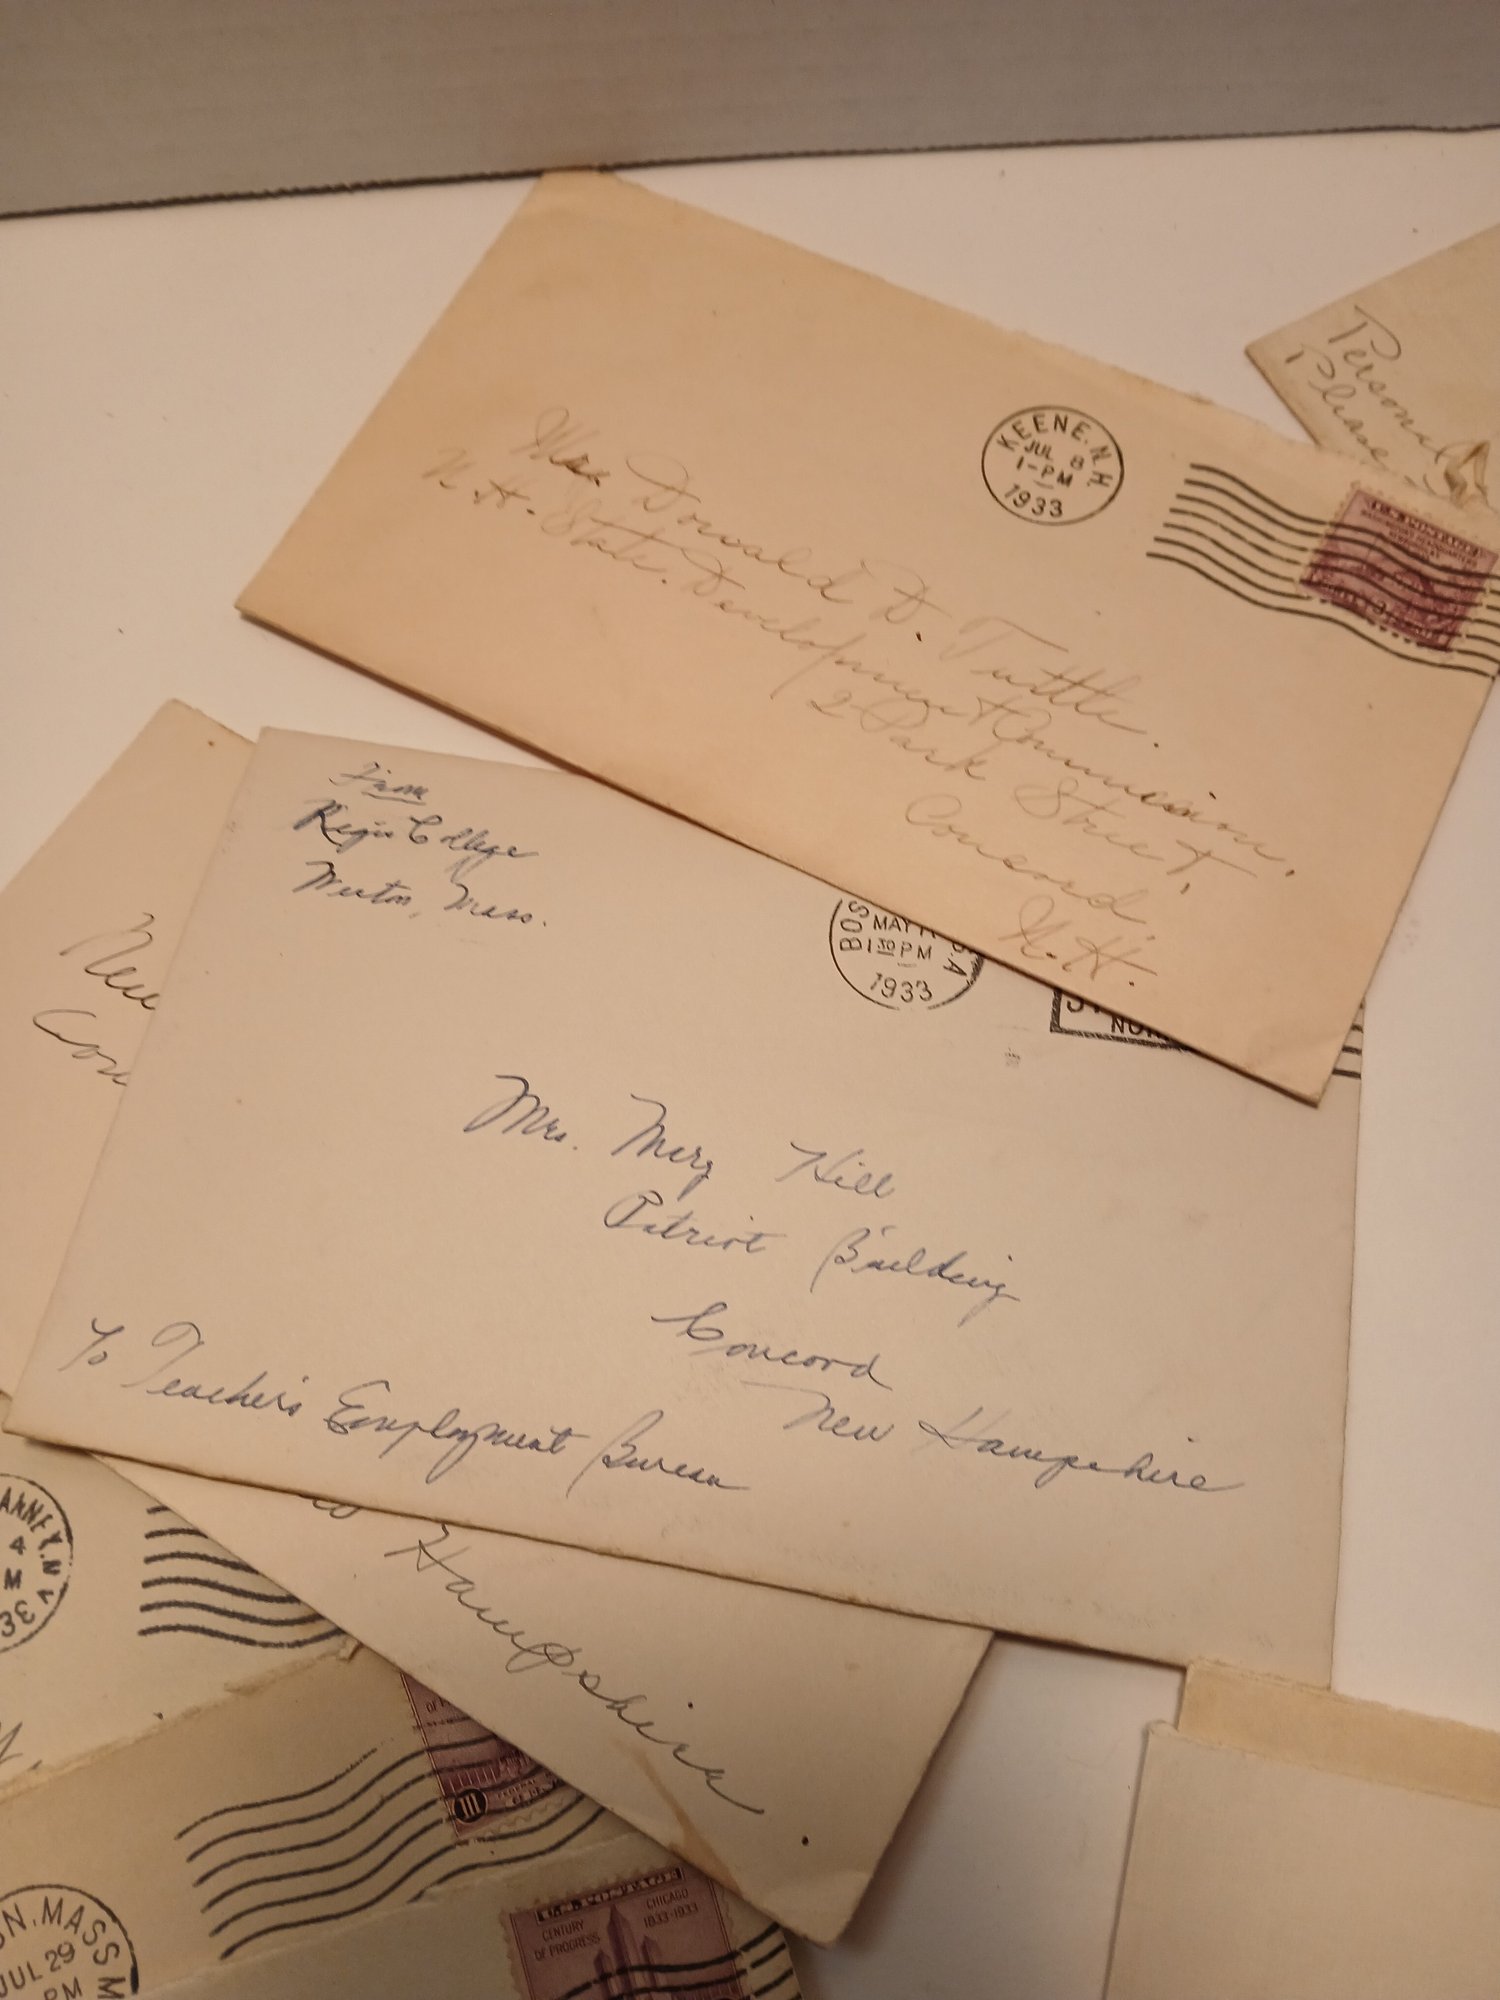 Personal
Please
KEENE. N.H.
JUL 8
1-PM
1933
Donald D. Tuttle.
N. H. State. Development Commission,
2 Park Street,
Concord,
N. H.
From
Regis College
Weston, Mass.
BOS
MAY
1 30 PM
1933
NOR
Mrs. Mary Hill
Patriot Building
Concord
New Hampshire
To Teacher's Employment Bureau
New
Con
Hampshire
ANNEY. N
4
M
33
III
N. MASS
JUL 29
PM
CENTURY
OF PROGRESS
CHICAGO
1833-1933